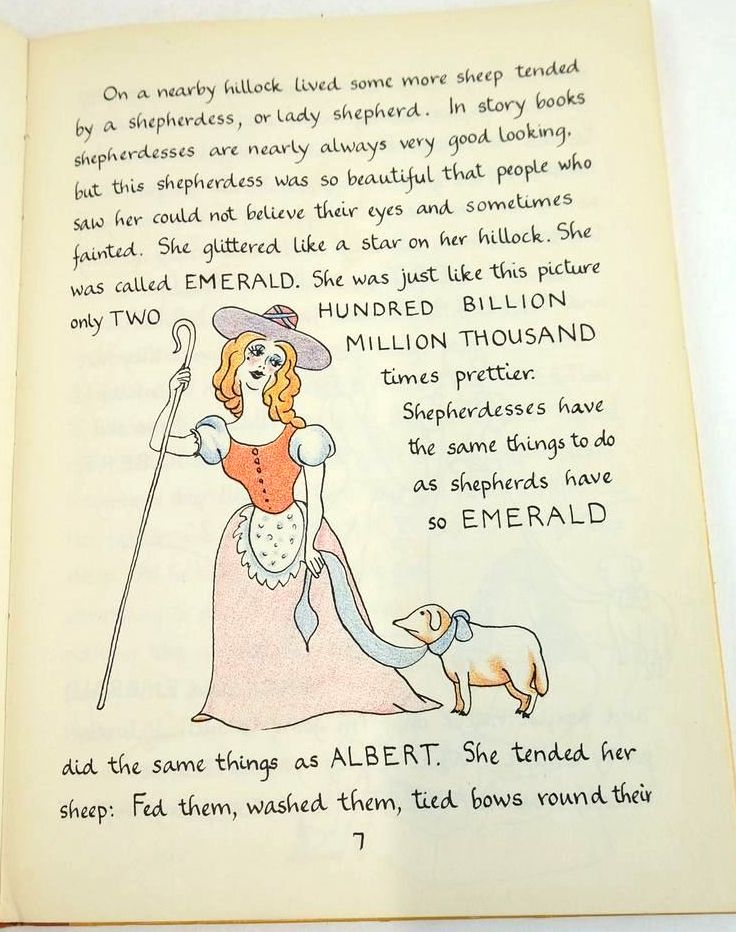 On a nearby hillock lived some more sheep tended
by a shepherdess, or lady shepherd. In story books
shepherdesses are nearly always very good looking,
but this shepherdess was so beautiful that people who
saw her could not believe their eyes and sometimes
fainted. She glittered like a star on her hillock. She
was called EMERALD. She was just like this picture
only TWO HUNDRED BILLION
MILLION THOUSAND
times prettier.
Shepherdesses have
the same things to do
as shepherds have
so EMERALD
did the same things as ALBERT. She tended her
sheep: Fed them, washed them, tied bows round their
7